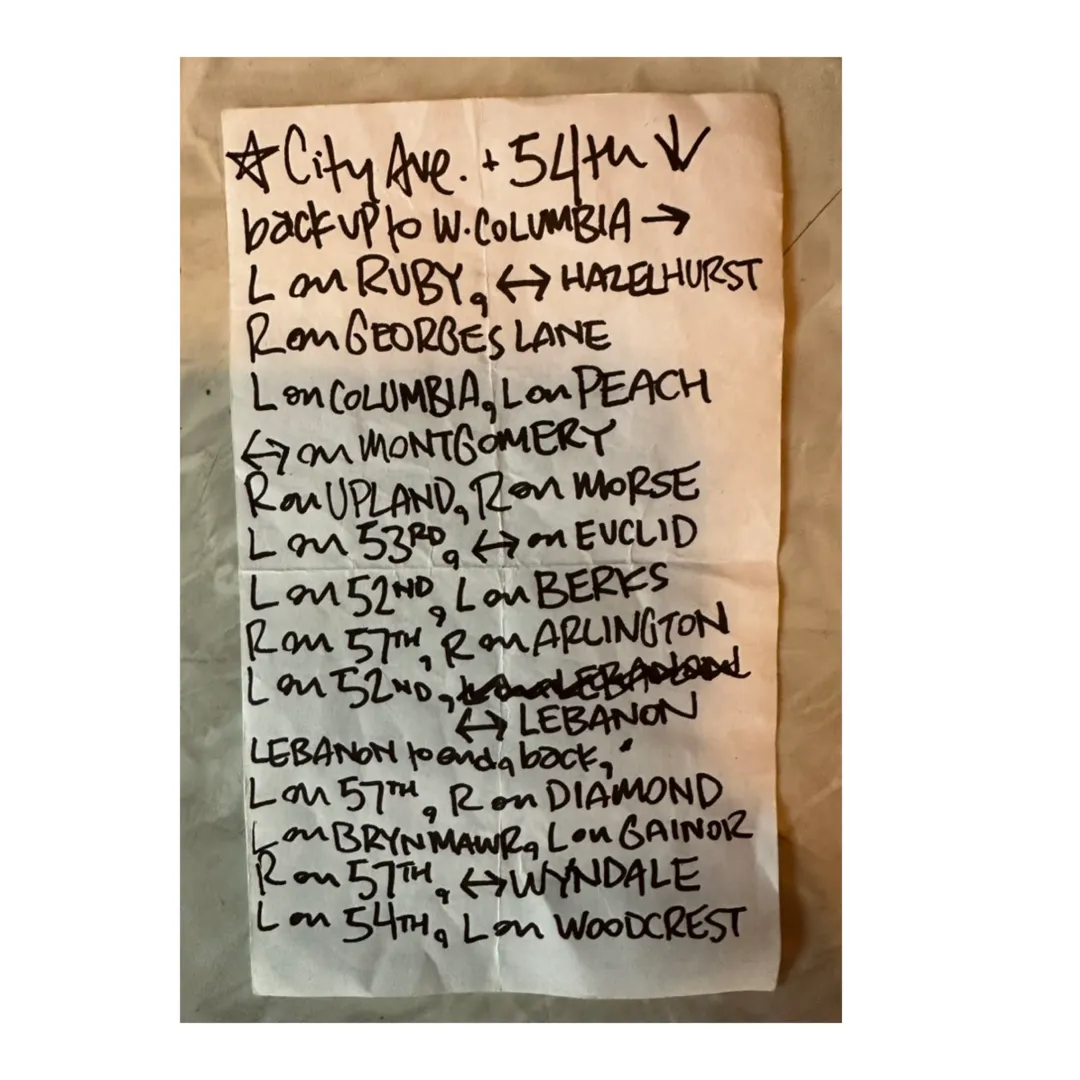 ☆ City Ave. + 54th ↓
back up to W. COLUMBIA →
L on RUBY, ↔ HAZELHURST
R on GEORGES LANE
L on COLUMBIA, L on PEACH
↔ on MONTGOMERY
R on UPLAND, R on MORSE
L on 53RD, ↔ on EUCLID
L on 52ND, L on BERKS
R on 57TH, R on ARLINGTON
L on 52ND,
↔ LEBANON
LEBANON to end, back,
L on 57TH, R on DIAMOND
L on BRYN MAWR, L on GAINOR
R on 57TH, ↔ WYNDALE
L on 54TH, L on WOODCREST